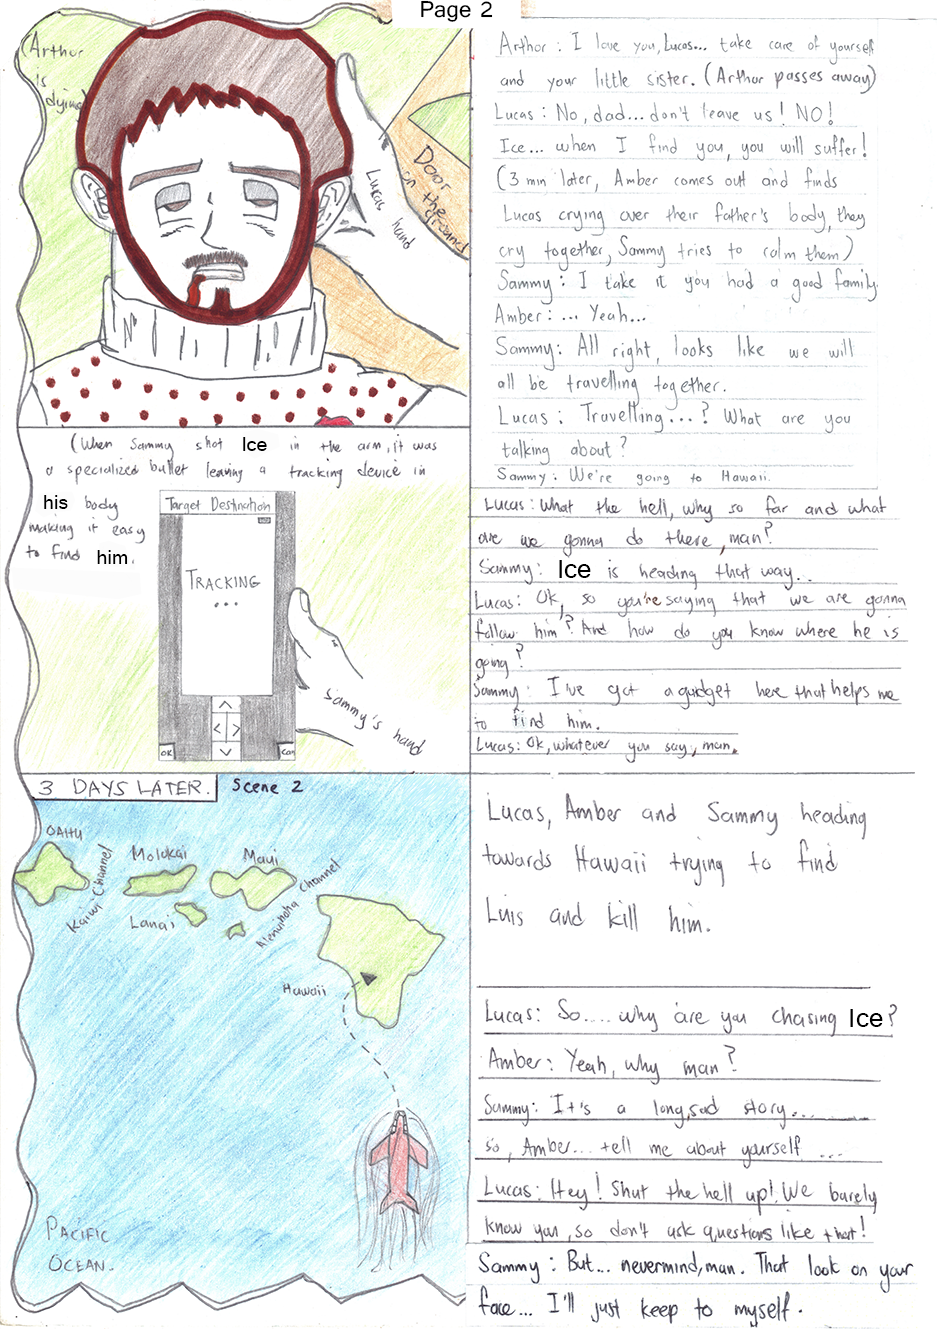 Page 2
(Arthor
is
dying)
Door
on the
ground
Lucas
hand
Arthor : I love you, Lucas... take care of yourself
and your little sister. (Arthor passes away)
Lucas : No, dad... don't leave us! NO!
Ice... when I find you, you will suffer!
(3 min later, Amber comes out and finds
Lucas crying over their father's body, they
cry together, Sammy tries to calm them)
Sammy : I take it you had a good family.
Amber: ... Yeah...
Sammy: All right, looks like we will
all be travelling together.
Lucas : Travelling...? What are you
talking about?
Sammy: We're going to Hawaii.
(When Sammy shot Ice in the arm, it was
a specialized bullet leaving a tracking device in
his body
making it easy
to find him.
Target Destination
TRACKING
...
OK
Can
Sammy's hand
Lucas: What the hell, why so far and what
are we gonna do there, man?
Sammy: Ice is heading that way..
Lucas: Ok, so you're saying that we are gonna
follow him? And how do you know where he is
going?
Sammy: I've got a gudget here that helps me
to find him.
Lucas: Ok, whatever you say, man.
3 DAYS LATER. Scene 2
OAHU
Kaiwi Channel
Molokai
Maui
Lanai
Alenuihaha Channel
Hawaii
PACIFIC
OCEAN.
Lucas, Amber and Sammy heading
towards Hawaii trying to find
Luis and kill him.
Lucas: So.... why are you chasing Ice?
Amber: Yeah, why man?
Sammy: It's a long, sad story...
so, Amber... tell me about yourself ...
Lucas: Hey! Shut the hell up! We barely
know you, so don't ask questions like that!
Sammy: But... nevermind, man. That look on your
face... I'll just keep to myself.